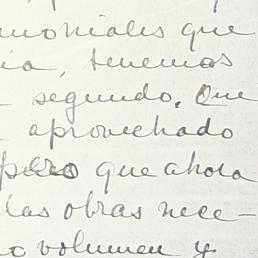 moniales que
ia, tenemos
segundo. Que
aprovechado
pero que ahora
las obras nece-
o volumen y